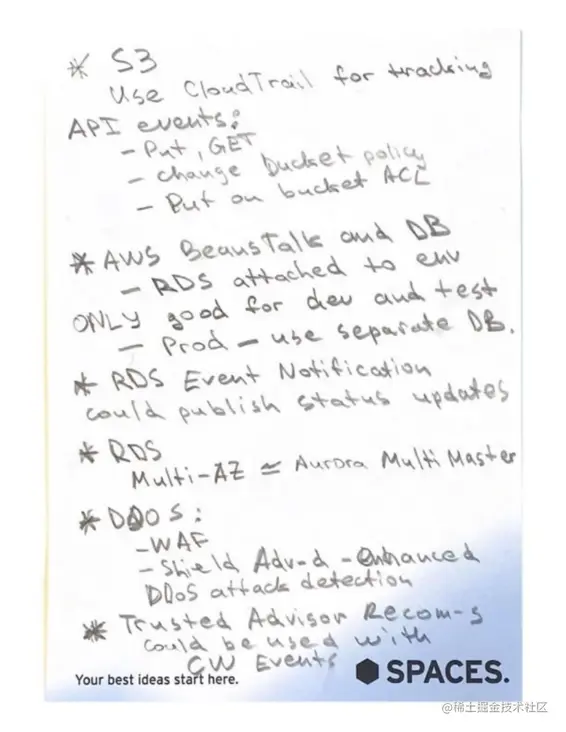 * S3
Use CloudTrail for tracking
API events:
- Put, GET
- change bucket policy
- Put on bucket ACL
* AWS BeansTalk and DB
- RDS attached to env
ONLY good for dev and test
- Prod - use separate DB.
* RDS Event Notification
could publish status updates
* RDS
Multi-AZ ≃ Aurora Multi Master
* DDOS:
- WAF
- Shield Adv-d - Enhanced
DDoS attack detection
* Trusted Advisor Recom-s
could be used with
CW Events
Your best ideas start here.
SPACES.
@稀土掘金技术社区